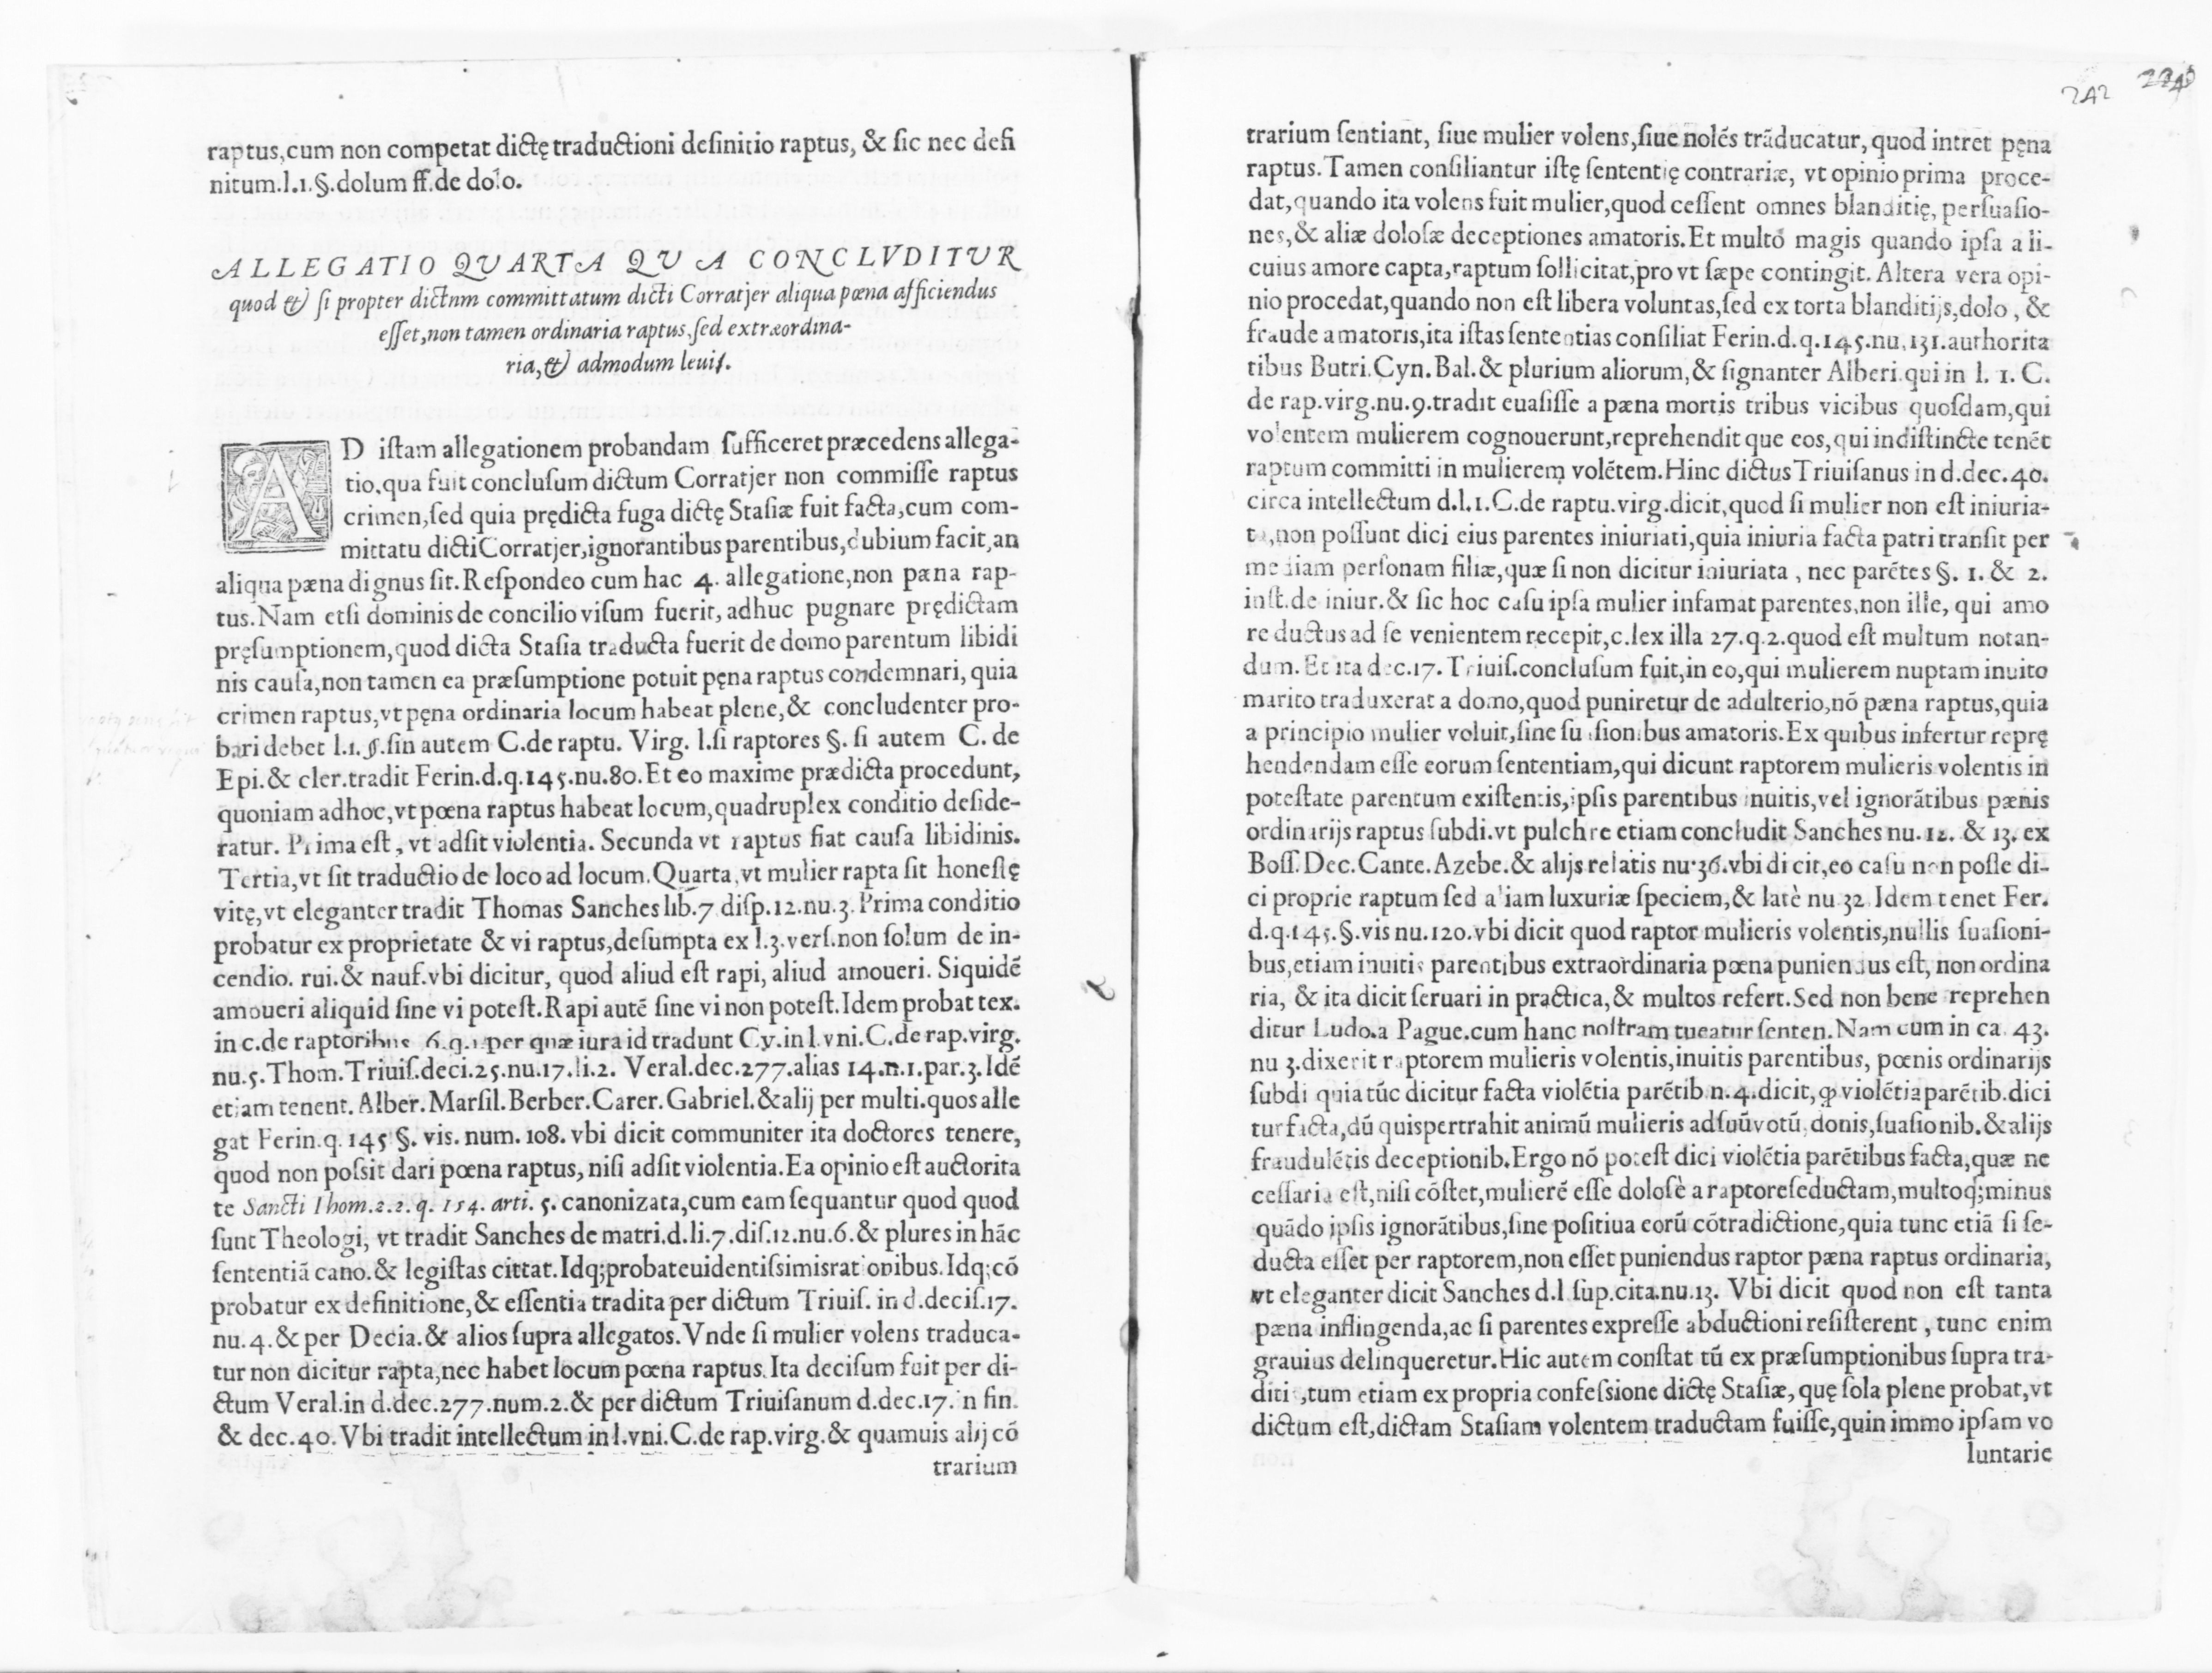 raptus,cum non competat dictę traductioni definitio raptus, & sic nec defi
nitum.l.1.§.dolum ff.de dolo.
ALLEGATIO QVARTA QVA CONCLVDITVR
quod & si propter dictnm committatum dicti Corratjer aliqua pœna afficiendus
esset,non tamen ordinaria raptus,sed extraordina-
ria,& admodum leuis.
AD istam allegationem probandam sufficeret præcedens allega-
tio,qua fuit conclusum dictum Corratjer non commisse raptus
crimen,sed quia prędicta fuga dictę Stasiæ fuit facta,cum com-
mittatu dicti Corratjer,ignorantibus parentibus,dubium facit,an
aliqua pæna dignus sit.Respondeo cum hac 4. allegatione,non pæna rap-
tus.Nam etsi dominis de concilio visum fuerit, adhuc pugnare prędictam
pręsumptionem,quod dicta Stasia traducta fuerit de domo parentum libidi
nis causa,non tamen ea præsumptione potuit pęna raptus condemnari, quia
crimen raptus,vt pęna ordinaria locum habeat plene,& concludenter pro-
bari debet l.1.§.sin autem C.de raptu. Virg. l.si raptores §. si autem C. de
Epi.& cler.tradit Ferin.d.q.145.nu.80.Et eo maxime prædicta procedunt,
quoniam adhoc,vt pœna raptus habeat locum,quadruplex conditio deside-
ratur. Prima est, vt adsit violentia. Secunda vt raptus fiat causa libidinis.
Tertia,vt sit traductio de loco ad locum.Quarta,vt mulier rapta sit honestę
vitę,vt eleganter tradit Thomas Sanches lib.7 disp.12.nu.3. Prima conditio
probatur ex proprietate & vi raptus,desumpta ex l.3.vers.non solum de in-
cendio. rui.& nauf.vbi dicitur, quod aliud est rapi, aliud amoueri. Siquidẽ
amoueri aliquid sine vi potest.Rapi autẽ sine vi non potest.Idem probat tex.
in c.de raptoribus 6.q.1.per quæ iura id tradunt Cy.in l.vni.C.de rap.virg.
nu.5.Thom.Triuis.deci.25.nu.17.li.2. Veral.dec.277.alias 14.n.1.par.3.Idẽ
etiam tenent. Alber.Marsil.Berber.Carer.Gabriel.&alij per multi.quos alle
gat Ferin.q. 145 §. vis. num. 108. vbi dicit communiter ita doctores tenere,
quod non possit dari pœna raptus, nisi adsit violentia.Ea opinio est auctorita
te Sancti Thom.2.2. q. 154. arti. 5. canonizata,cum eam sequantur quod quod
sunt Theologi, vt tradit Sanches de matri.d.li.7.dis.12.nu.6.& plures in hãc
sententiã cano.& legistas cittat.Idq;probateuidentissimisrationibus.Idq;cõ
probatur ex definitione,& essentia tradita per dictum Triuis. in d.decis.17.
nu.4.& per Decia.& alios supra allegatos.Vnde si mulier volens traduca-
tur non dicitur rapta,nec habet locum pœna raptus.Ita decisum fuit per di-
ctum Veral.in d.dec.277.num.2.& per dictum Triuisanum d.dec.17. in fin.
& dec.40.Vbi tradit intellectum in l.vni.C.de rap.virg.& quamuis alij cõ
trarium
242
trarium sentiant, siue mulier volens,siue nolẽs trãducatur,quod intret pęna
raptus.Tamen consiliantur istę sententię contrariæ, vt opinio prima proce-
dat,quando ita volens fuit mulier,quod cessent omnes blanditię, persuasio-
nes,& aliæ dolosæ deceptiones amatoris.Et multò magis quando ipsa ali-
cuius amore capta,raptum sollicitat,pro vt sæpe contingit. Altera vera opi-
nio procedat,quando non est libera voluntas,sed ex torta blanditijs,dolo, &
fraude amatoris,ita istas sententias consiliat Ferin.d.q.145.nu,131.authorita
tibus Butri.Cyn.Bal.& plurium aliorum,& signanter Alberi.qui in l. 1. C.
de rap.virg.nu.9.tradit euasisse a pæna mortis tribus vicibus quosdam,qui
volentem mulierem cognouerunt,reprehendit que eos,qui indistincte tenẽt
raptum committi in mulierem volẽtem.Hinc dictus Triuisanus in d.dec.40.
circa intellectum d.l.1.C.de raptu.virg.dicit,quod si mulier non est iniuria-
ta,non possunt dici eius parentes iniuriati,quia iniuria facta patri transit per
mediam personam filiæ,quæ si non dicitur iniuriata, nec parẽtes §. 1. & 2.
inst.de iniur.& sic hoc casu ipsa mulier infamat parentes,non ille, qui amo
re ductus ad se venientem recepit,c.lex illa 27.q.2.quod est multum notan-
dum. Et ita dec.17. Triuis.conclusum fuit,in eo,qui mulierem nuptam inuito
marito traduxerat a domo,quod puniretur de adulterio,nõ pæna raptus,quia
a principio mulier voluit,sine suasionibus amatoris.Ex quibus infertur reprę
hendendam esse eorum sententiam,qui dicunt raptorem mulieris volentis in
potestate parentum existentis,ipsis parentibus inuitis,vel ignorãtibus pænis
ordinarijs raptus subdi.vt pulchre etiam concludit Sanches nu. 12. & 13. ex
Boss.Dec.Cante.Azebe.& alijs relatis nu.36.vbi dicit,eo casu non posse di-
ci proprie raptum sed aliam luxuriæ speciem,& latè nu 32. Idem tenet Fer.
d.q.145.§.vis nu.120.vbi dicit quod raptor mulieris volentis,nullis suasioni-
bus,etiam inuitis parentibus extraordinaria pœna puniendus est, non ordina
ria, & ita dicit seruari in practica,& multos refert.Sed non bene reprehen
ditur Ludo.a Pague.cum hanc nostram tueatur senten.Nam cum in ca. 43.
nu 3.dixerit raptorem mulieris volentis,inuitis parentibus, pœnis ordinarijs
subdi quia tũc dicitur facta violẽtia parẽtib.n.4.dicit,ꝙ violẽtia parẽtib.dici
tur facta,dũ quispertrahit animũ mulieris adsuũvotũ,donis,suasionib.&alijs
fraudulẽtis deceptionib.Ergo nõ potest dici violẽtia parẽtibus facta,quæ ne
cessaria est,nisi cõstet,mulierẽ esse dolosè a raptoreseductam,multoq;minus
quãdo ipsis ignorãtibus,sine positiua eorũ cõtradictione,quia tunc etiã si se-
ducta esset per raptorem,non esset puniendus raptor pæna raptus ordinaria,
vt eleganter dicit Sanches d.l sup.cita.nu.13. Vbi dicit quod non est tanta
pæna inflingenda,ac si parentes expresse abductioni resisterent, tunc enim
grauius delinqueretur.Hic autem constat tũ ex præsumptionibus supra tra-
ditis,tum etiam ex propria confessione dictę Stasiæ, quę sola plene probat,vt
dictum est,dictam Stasiam volentem traductam fuisse,quin immo ipsam vo
luntarie